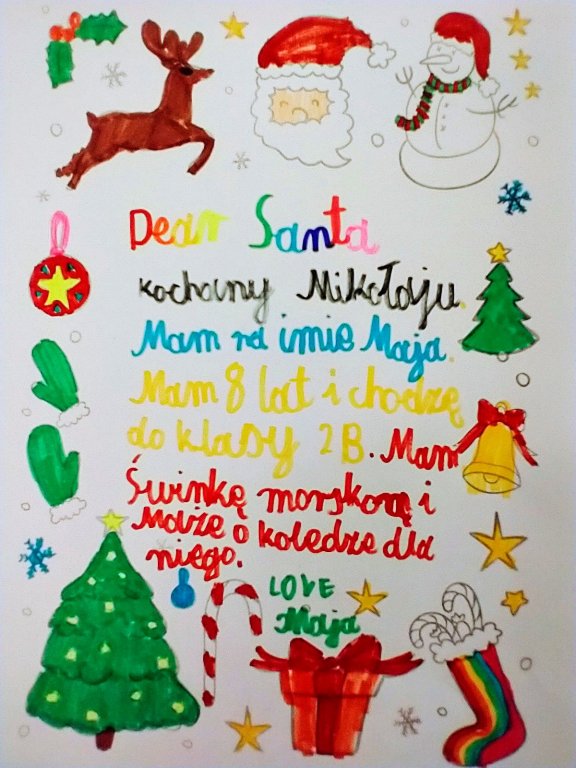 Dear Santa
kochany Mikołaju.
Mam na imie Maja.
Mam 8 lat i chodzę
do klasy 2B. Mam
Świnkę morskową i
Marzę o koledze dla
niego.
LOVE
Maja